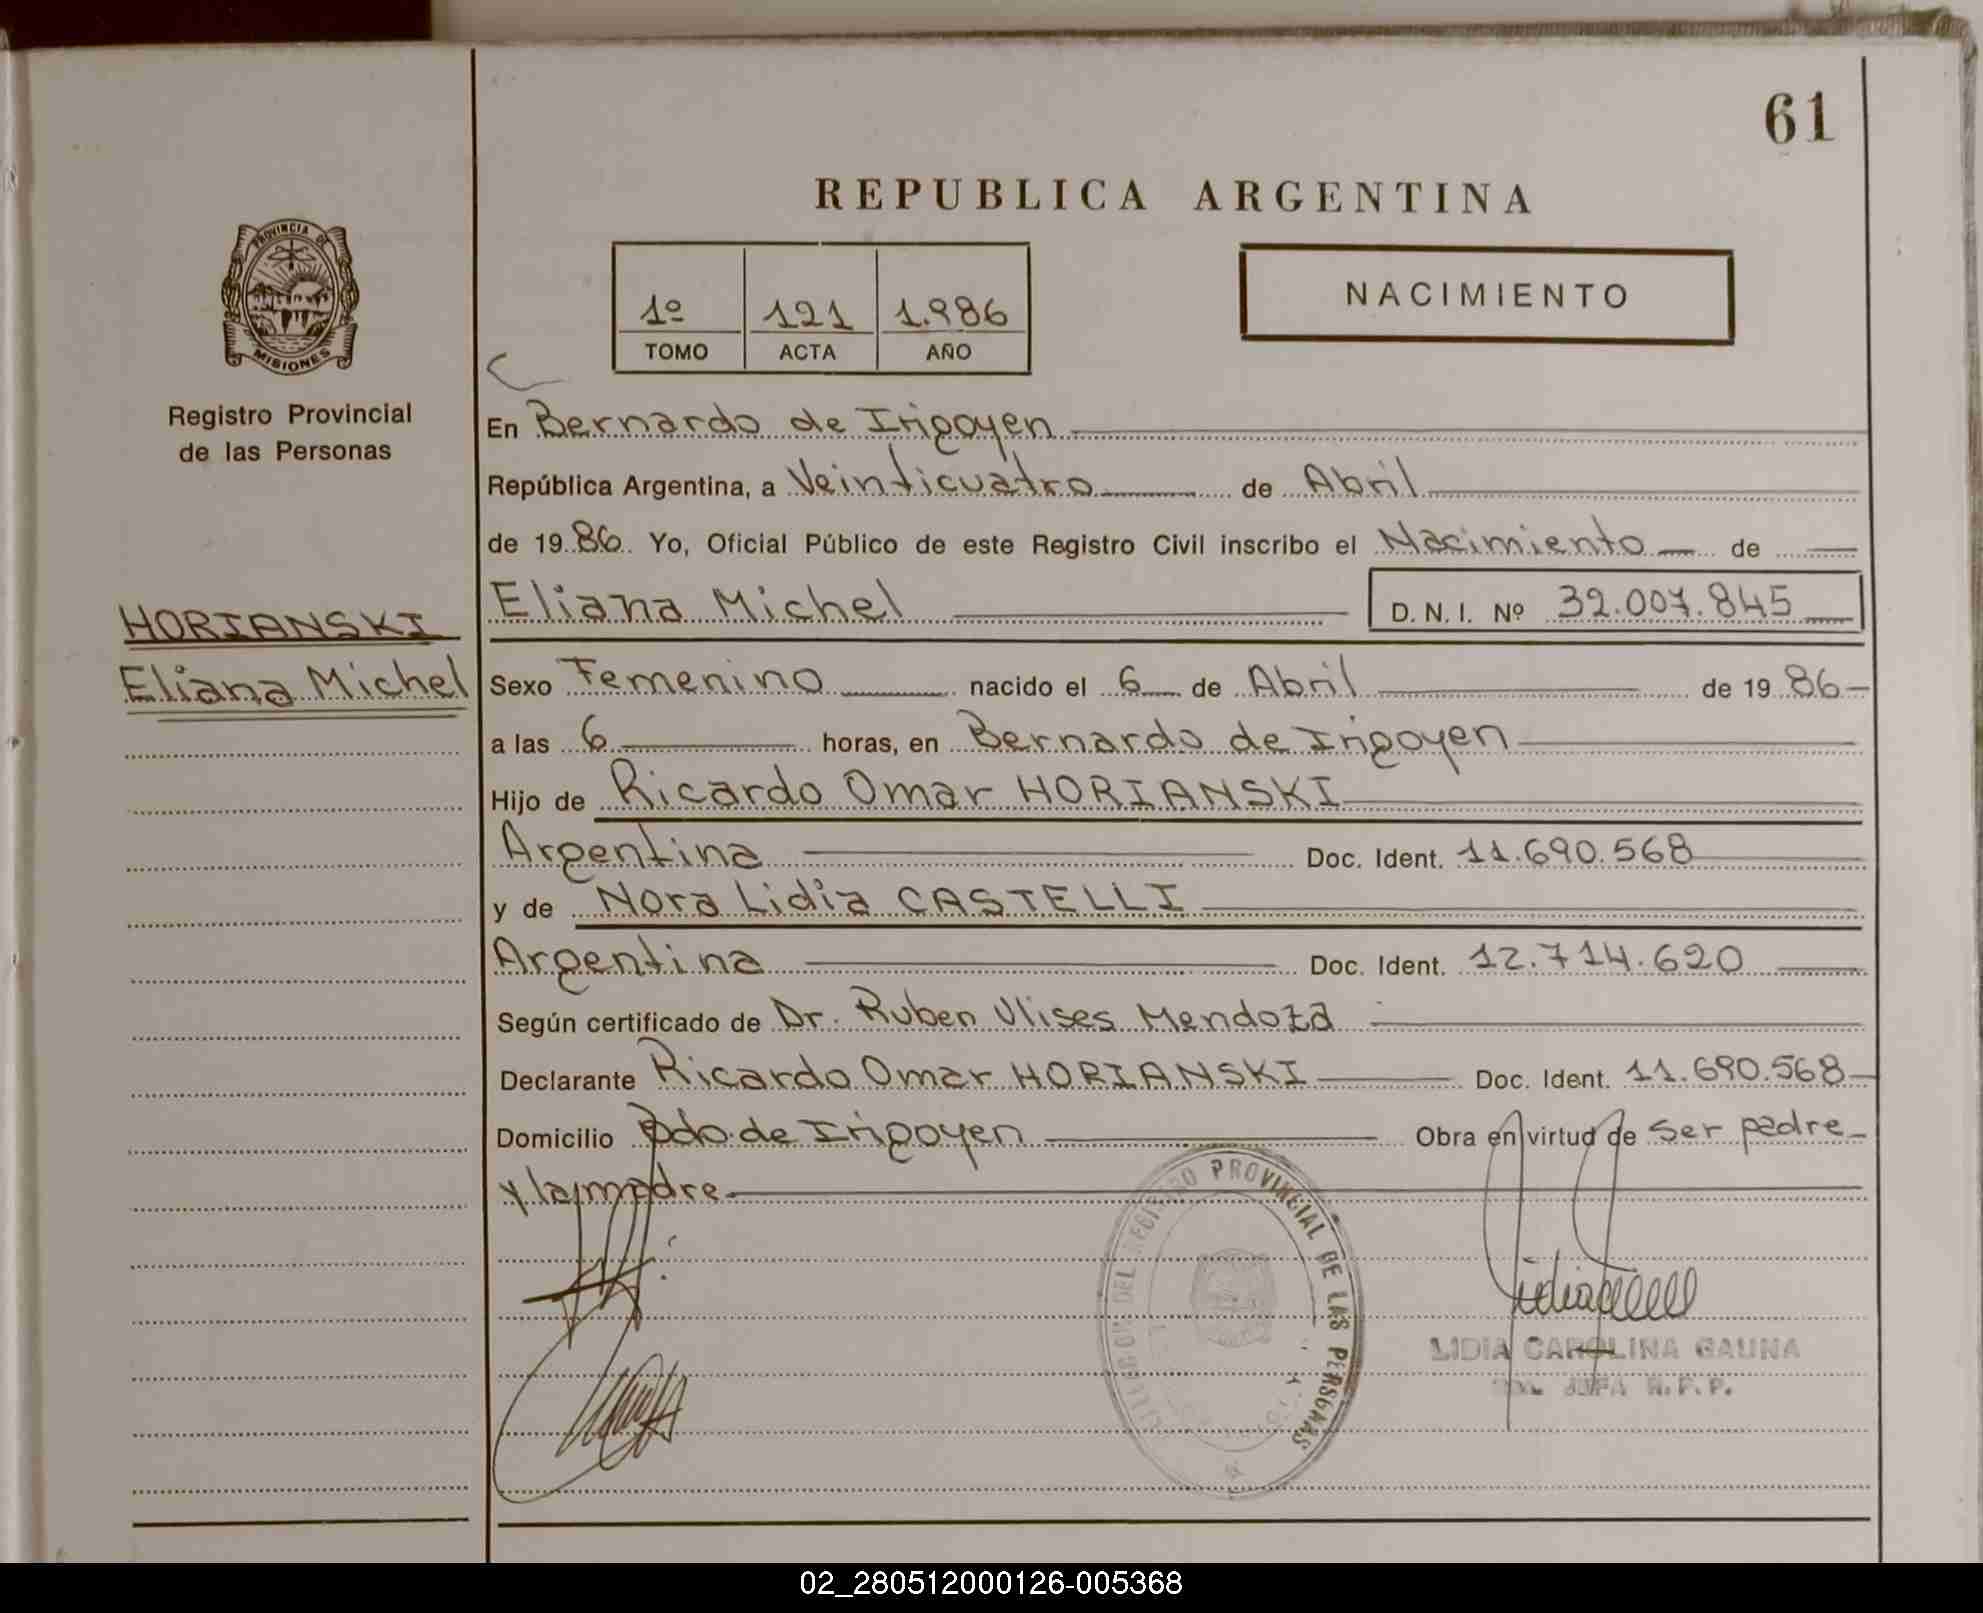 61
REPUBLICA ARGENTINA
PROVINCIA DE
MISIONES
Registro Provincial
de las Personas
1º 121 1.986
TOMO ACTA AÑO
NACIMIENTO
En Bernardo de Irigoyen
República Argentina, a Veinticuatro de Abril
de 1986. Yo, Oficial Público de este Registro Civil inscribo el Nacimiento de
Eliana Michel D. N. I. Nº 32.007.845
HORIANSKI
Eliana Michel
Sexo Femenino nacido el 6 de Abril de 1986
a las 6 horas, en Bernardo de Irigoyen
Hijo de Ricardo Omar HORIANSKI
Argentina Doc. Ident. 11.690.568
y de Nora Lidia CASTELLI
Argentina Doc. Ident. 12.714.620
Según certificado de Dr. Ruben Ulises Mendoza
Declarante Ricardo Omar HORIANSKI Doc. Ident. 11.690.568
Domicilio Bdo. de Irigoyen Obra en virtud de ser padre
y la madre
DEL REGISTRO PROVINCIAL DE LAS PERSONAS
LIDIA CAROLINA GAUNA
JEFA R.P.P.
02_280512000126-005368